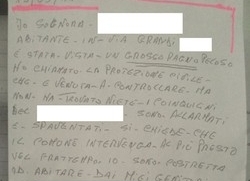 IO SIGNORA
ABITANTE IN VIA
E STATA VISTA UN GROSSO RAGNO PELOSO
HO CHIAMATO LA PROTEZIONE CIVILE
CHE E VENUTA A CONTROLLARE MA
NON HA TROVATO NIETE I COINQUILINI
DEL SONO ALLARMATI
E SPAVENTATI SI CHIEDE CHE
IL COMUNE INTERVENGA AL PIÙ PRESTO
NEL FRATTEMPO IO SONO COSTRETTA
AD ABITARE DAI MIEI GENITORI